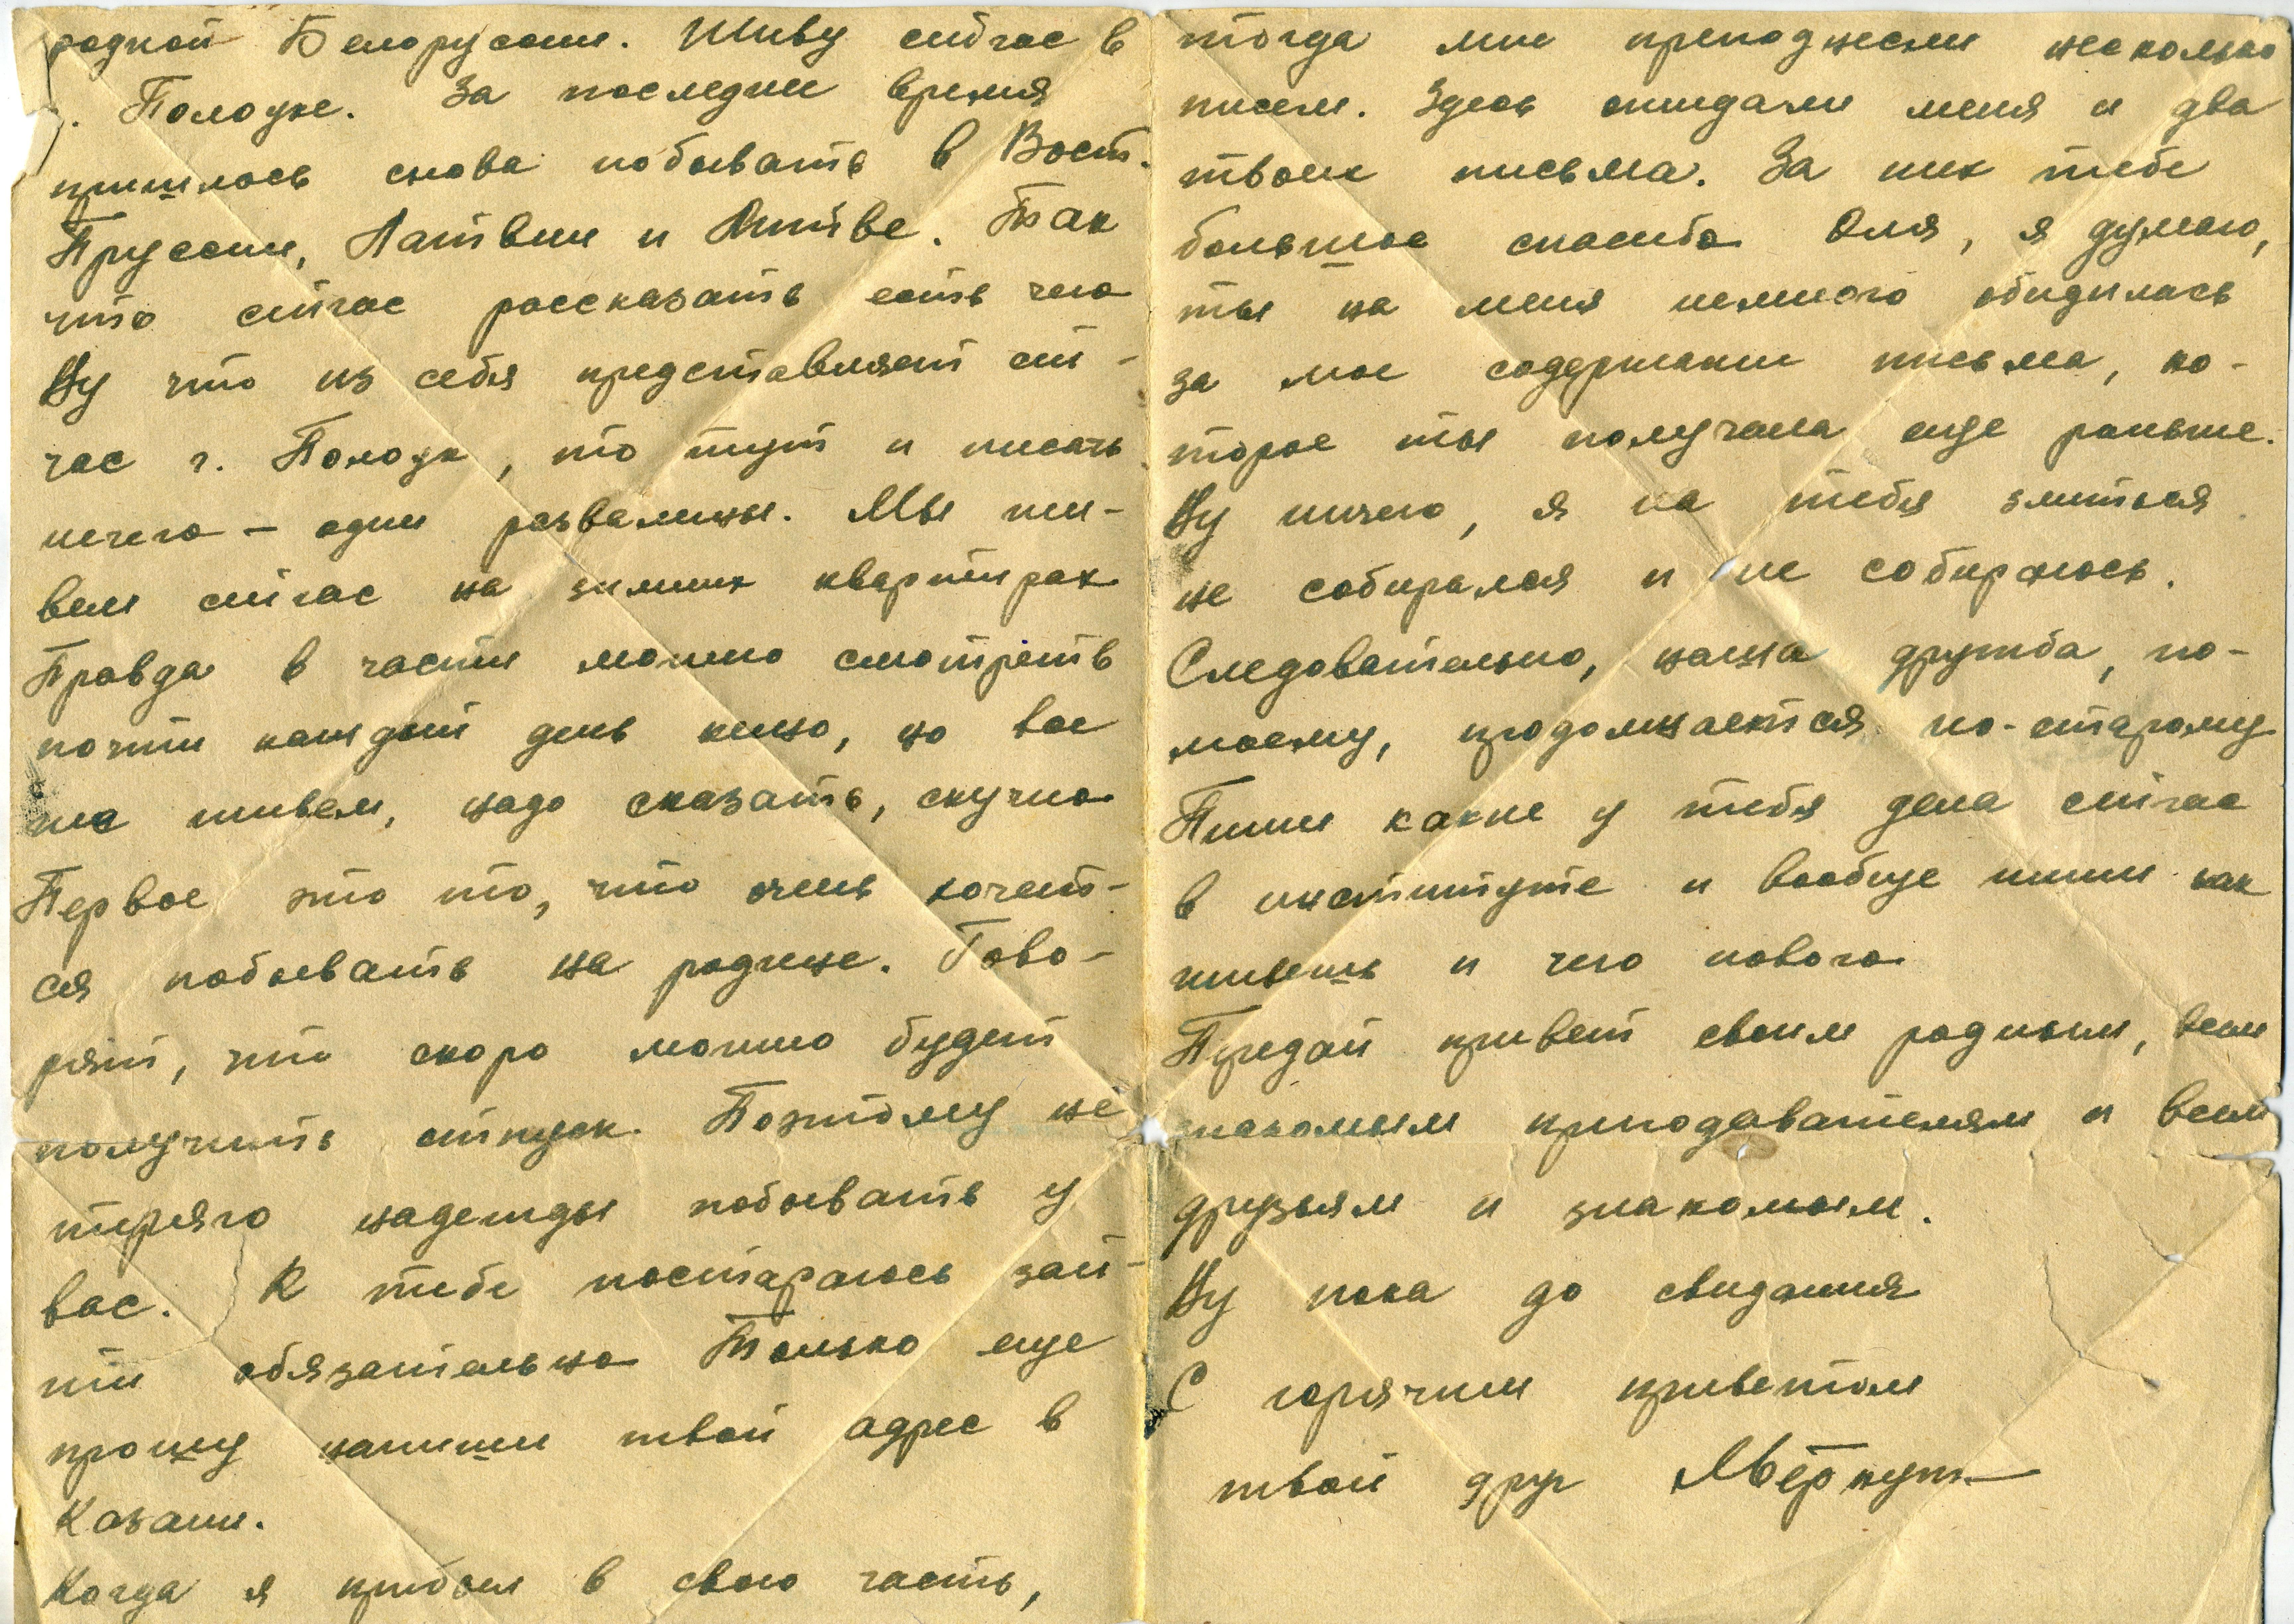 родной Белоруссии. Живу сейчас в
г. Полоцке. За последнее время
пришлось снова побывать в Вост.
Пруссии, Латвии и Литве. Так
что сейчас рассказать есть чего
Ну что из себя представляет сей-
час г. Полоцк, то тут и писать
нечего – одни развалины. Мы жи-
вем сейчас на зимних квартирах
Правда в части можно смотреть
почти каждый день кино, но все
же живем, надо сказать, скучно
Первое это то, что очень хочет-
ся побывать на родине. Гово-
рят, что скоро можно будет
получить отпуск. Поэтому не
теряю надежды побывать у
вас. К тебе постараюсь зай-
ти обязательно Только еще
прошу напиши твой адрес в
Казани.
Когда я прибыл в свою часть,
тогда мне преподнесли несколько
писем. Здесь ожидали меня и два
твоих письма. За них тебе
большое спасибо Оля, я думаю,
ты на меня немного обиделась
за мое содержание письма, ко-
торое ты получала еще раньше.
Ну ничего, я на тебя злиться
не собирался и не собираюсь.
Следовательно, наша дружба, по-
моему, продолжается по-старому
Пиши какие у тебя дела сейчас
в институте и вообще пиши как
живешь и чего нового
Передай привет своим родным, всем
знакомым преподавателям и всем
друзьям и знакомым.
Ну пока до свидания
С горячим приветом
твой друг